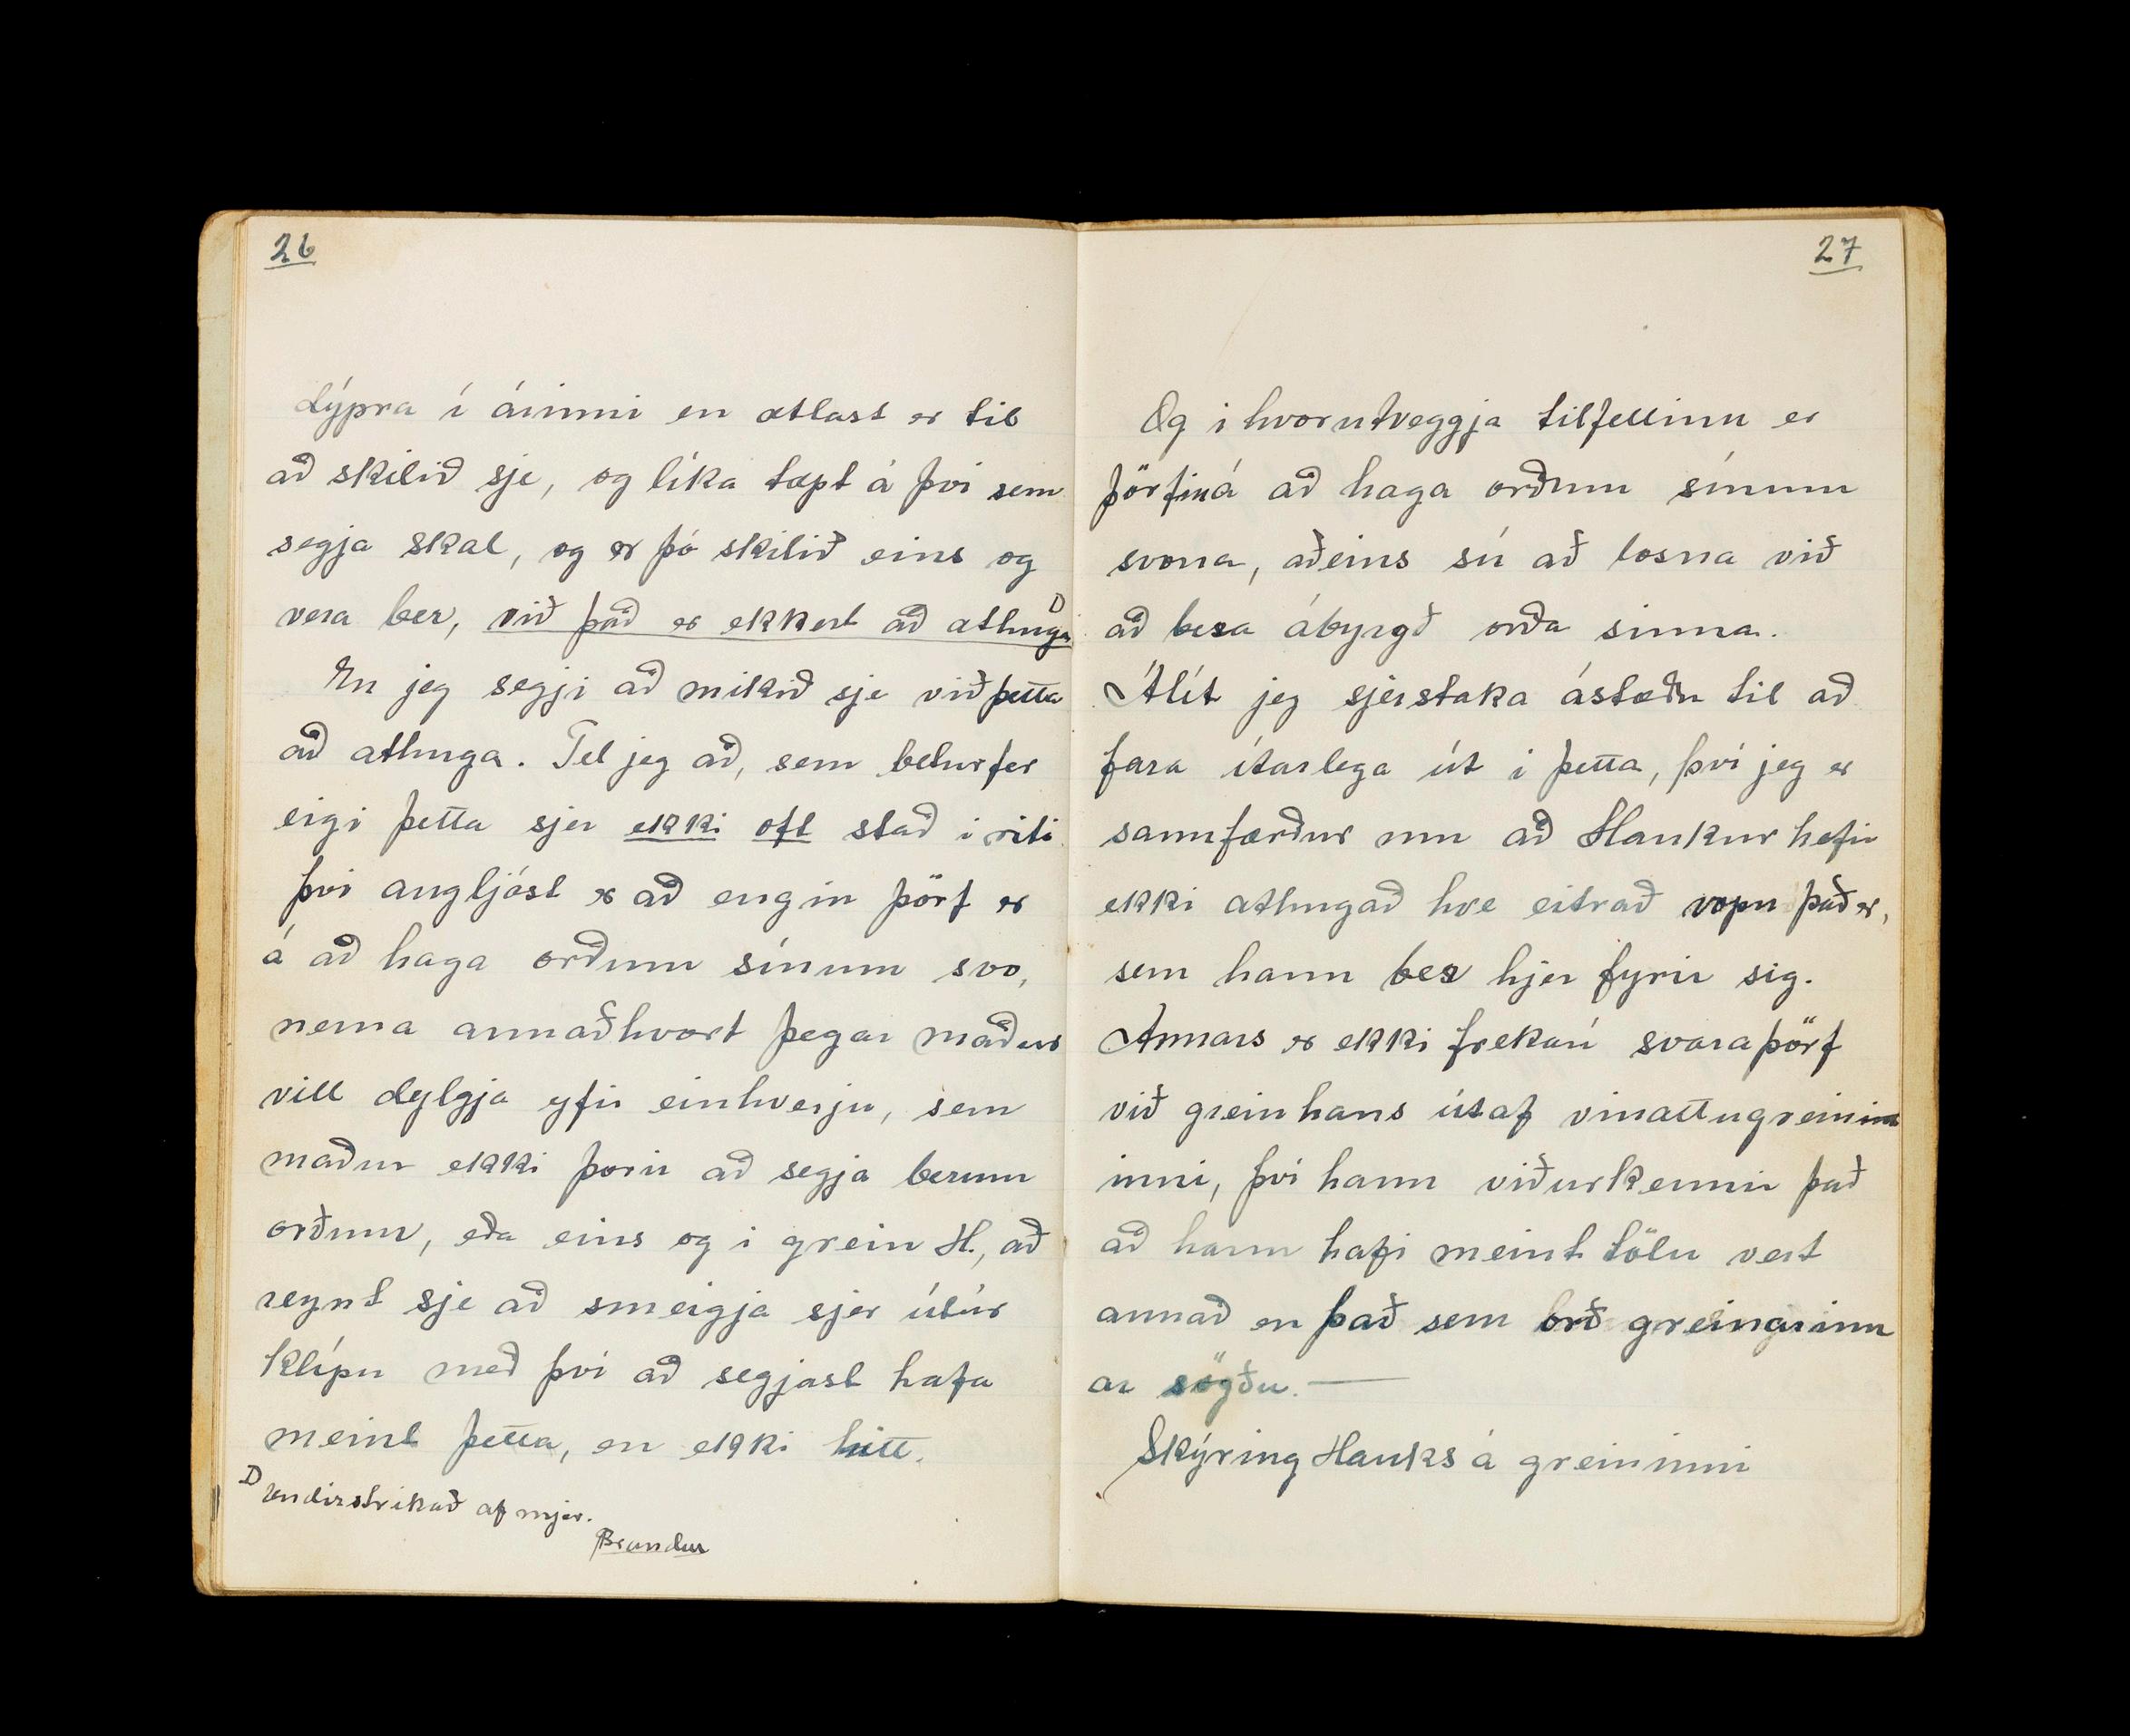 26
dýpra í áinni en ætlast er til
að skilið sje, og líka tæpt á því sem
segja skal, og er þó skilið eins og
vera ber, við það er ekkert að athuga
En jeg segji að mikið sje við þetta
að athuga. Tel jeg að, sem betur fer
eigi þetta sjer ekki oft stað i riti
þvi augljóst er að engin þörf er
á að haga orðum sínum svo,
nema annaðhvort þegar maður
vill dylgja yfir einhverju, sem
maður ekki þorir að segja berum
orðum, eða eins og i grein H., að
reynt sje að smeigja sjer útúr
klípu með þvi að segjast hafa
meint þetta, en ekki hitt.
Undirstrikað af mjer.
Brandur
27
Og i hvorutveggja tilfellinu er
þörfin á að haga orðum sínum
svona, aðeins sú að losna við
að bera ábyrgð orða sinna.
Álít jeg sjerstaka ástæðu til að
fara ítarlega út i þetta, því jeg er
sannfærður um að Haukur hefir
ekki athugað hve eitrað vopn það er,
sem hann ber hjer fyrir sig.
Annars er ekki frekari svara þörf
við grein hans útaf vinattugreinin
inni, því hann viðurkennir það
að hann hafi meint tölu vert
annað en það sem orð greinarinn
ar sögðu. —
Skýring Hauks á greininni